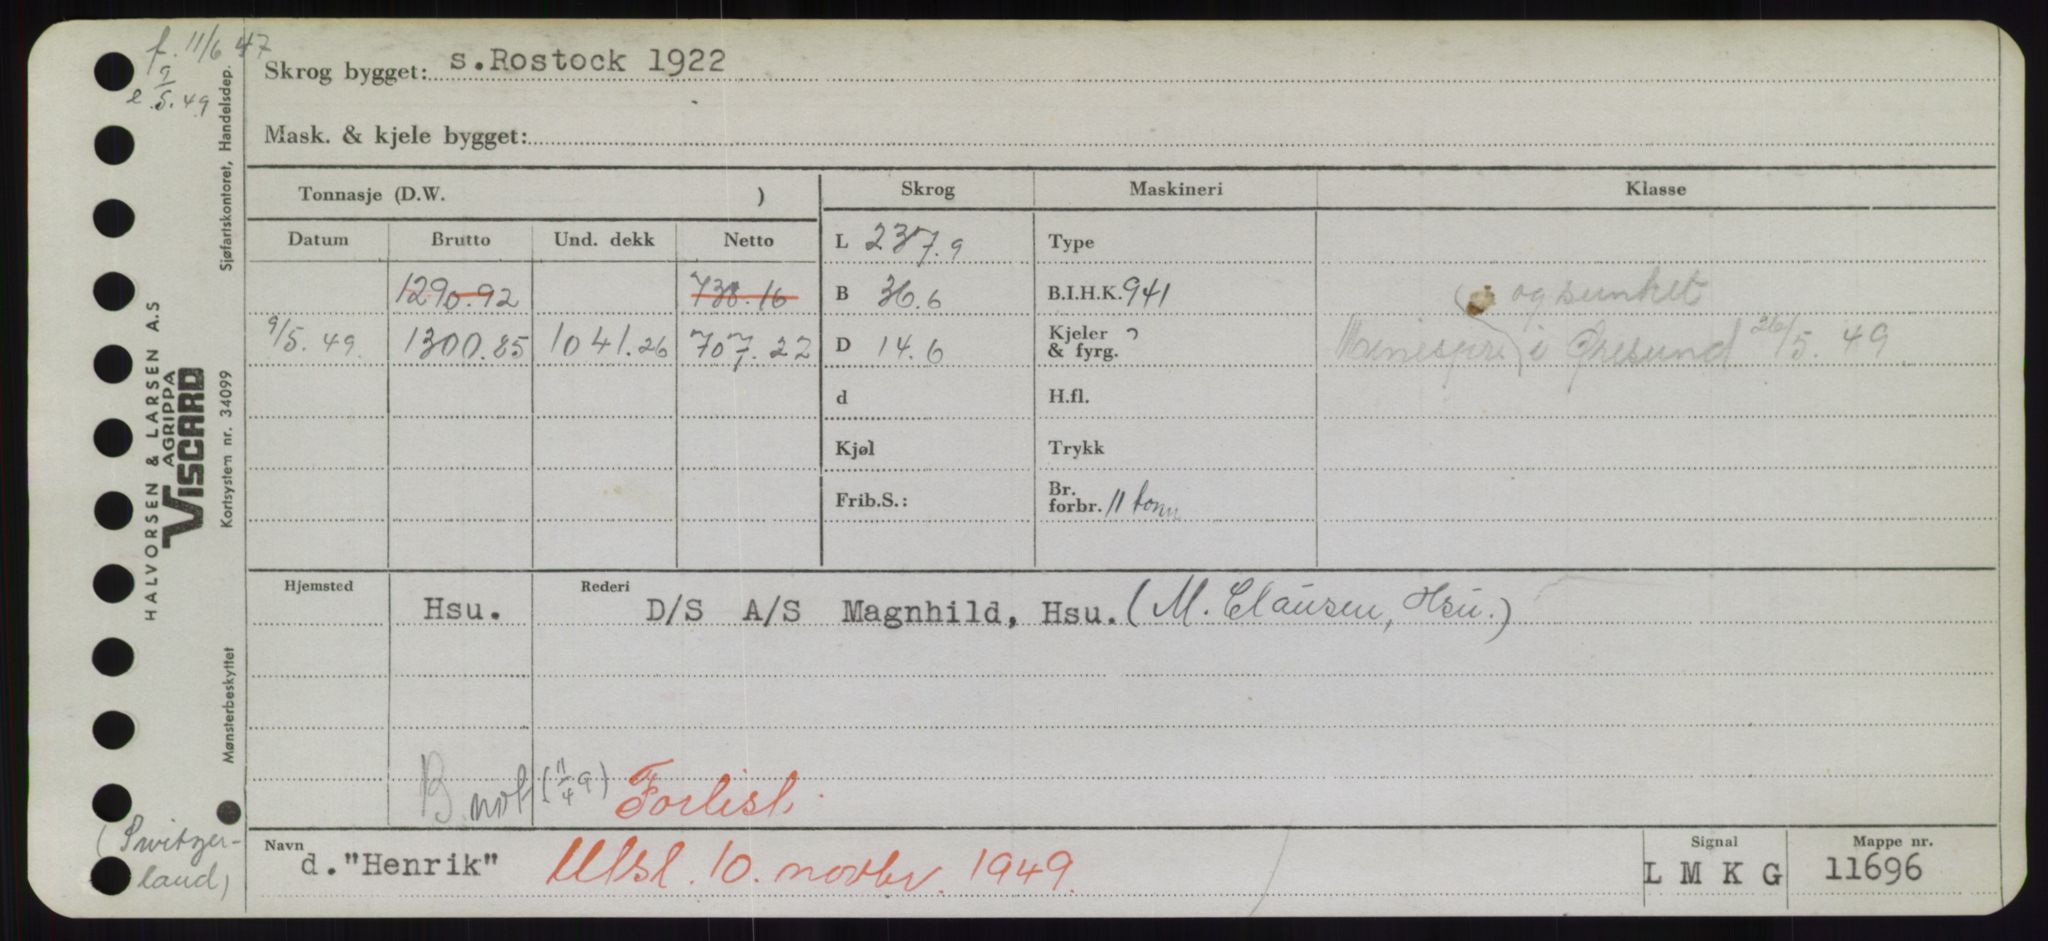 f. 11/6 47
9/5. 49
Skrog bygget: s.Rostock 1922
Mask. & kjele bygget:
Tonnasje (D.W. )
Skrog
Maskineri
Klasse
Datum Brutto Und. dekk Netto
L 237.9
Type
1290.92 738.16
B 36.6
B.I.H.K. 941
og sunket
9/5. 49. 1300.85 1041.26 707.22
D 14.6
Kjeler ?
& fyrg.
Minespr. i Øresund 26/5. 49.
d
H.fl.
Kjøl
Trykk
Frib.S.:
Br.
forbr. 11 tonn
Hjemsted
Rederi
Hsu. D/S A/S Magnhild, Hsu. (M. Clausen, Hsu.)
B. not (11/4 9) Forlist.
Navn
d. "Henrik" Utsl. 10. novbr. 1949.
Signal
L M K G
Mappe nr.
11696
HALVORSEN & LARSEN A.S
AGRIPPA
VISCARD
Kortsystem nr. 34099
Sjøfartskontoret, Handelsdep.
Mønsterbeskyttet
(Switzer-
land)